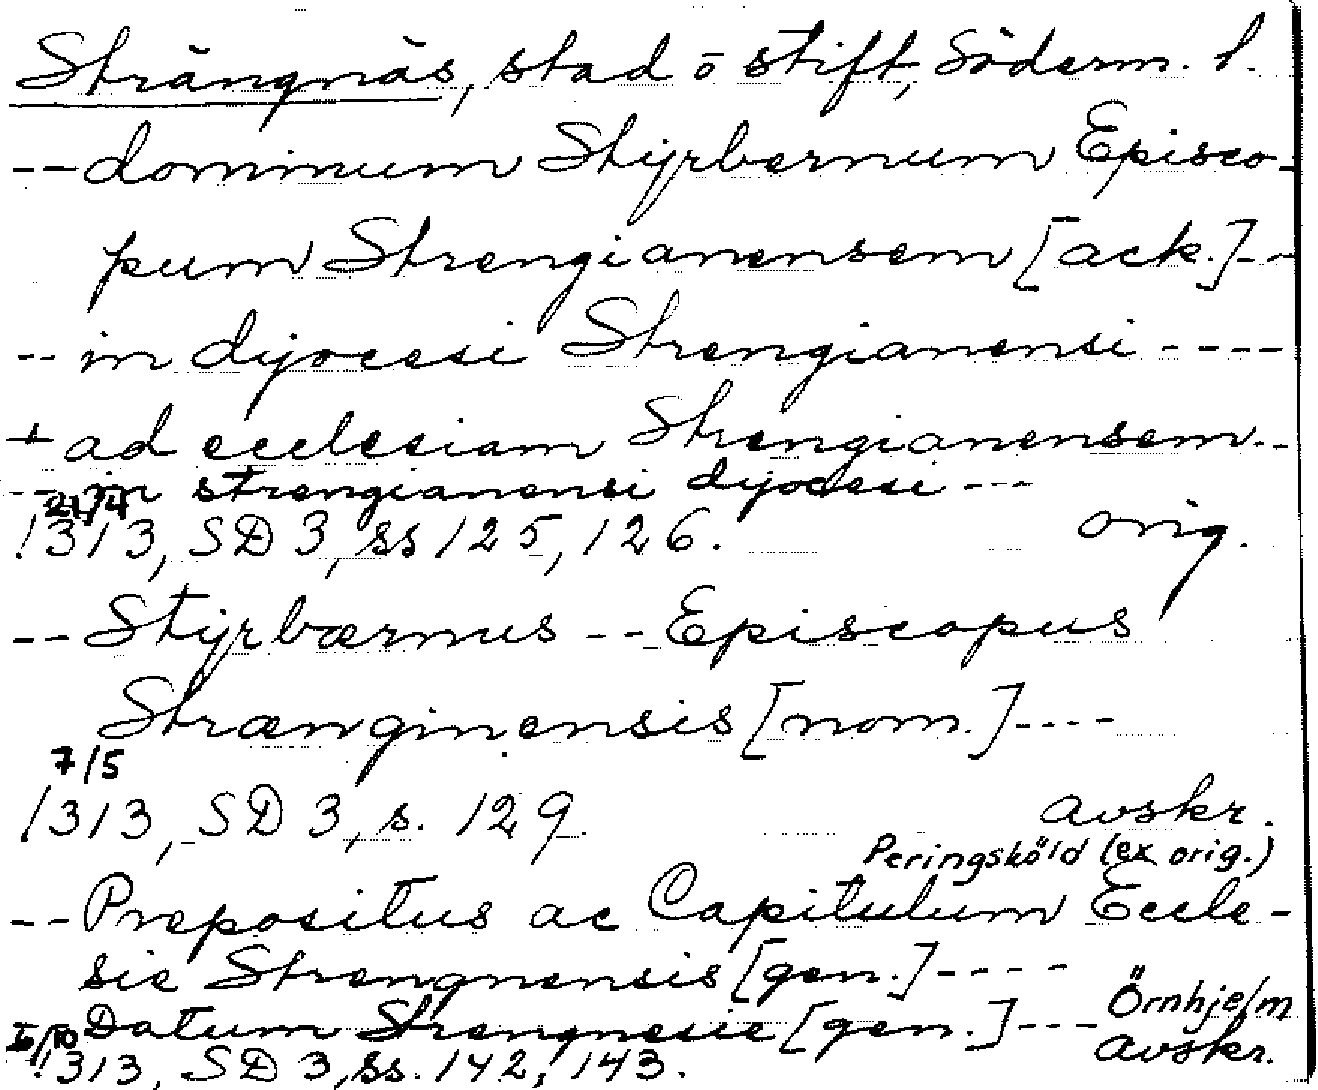 Strängnäs, stad o stift, Söderm. l.
-- dominum Styrbernum Episco-
pum Strengianensem [ack.]--
-- in dyocesi Strengianensi ----
+ ad ecclesiam Strengianensem--
-- in strengianensi dyocesi ---
21/4
1313, SD 3, ss 125, 126. orig.
-- Styrbærnus -- Episcopus
Strænginensis [nom.]----
7/5
1313, SD 3, s. 129. avskr.
Peringsköld (ex orig.)
-- Prepositus ac Capitulum Eccle-
sie Strengnensis [gen.]----
Datum Strengnesie [gen.]--- Örnhjelm
1313, SD 3, ss. 142, 143. avskr.